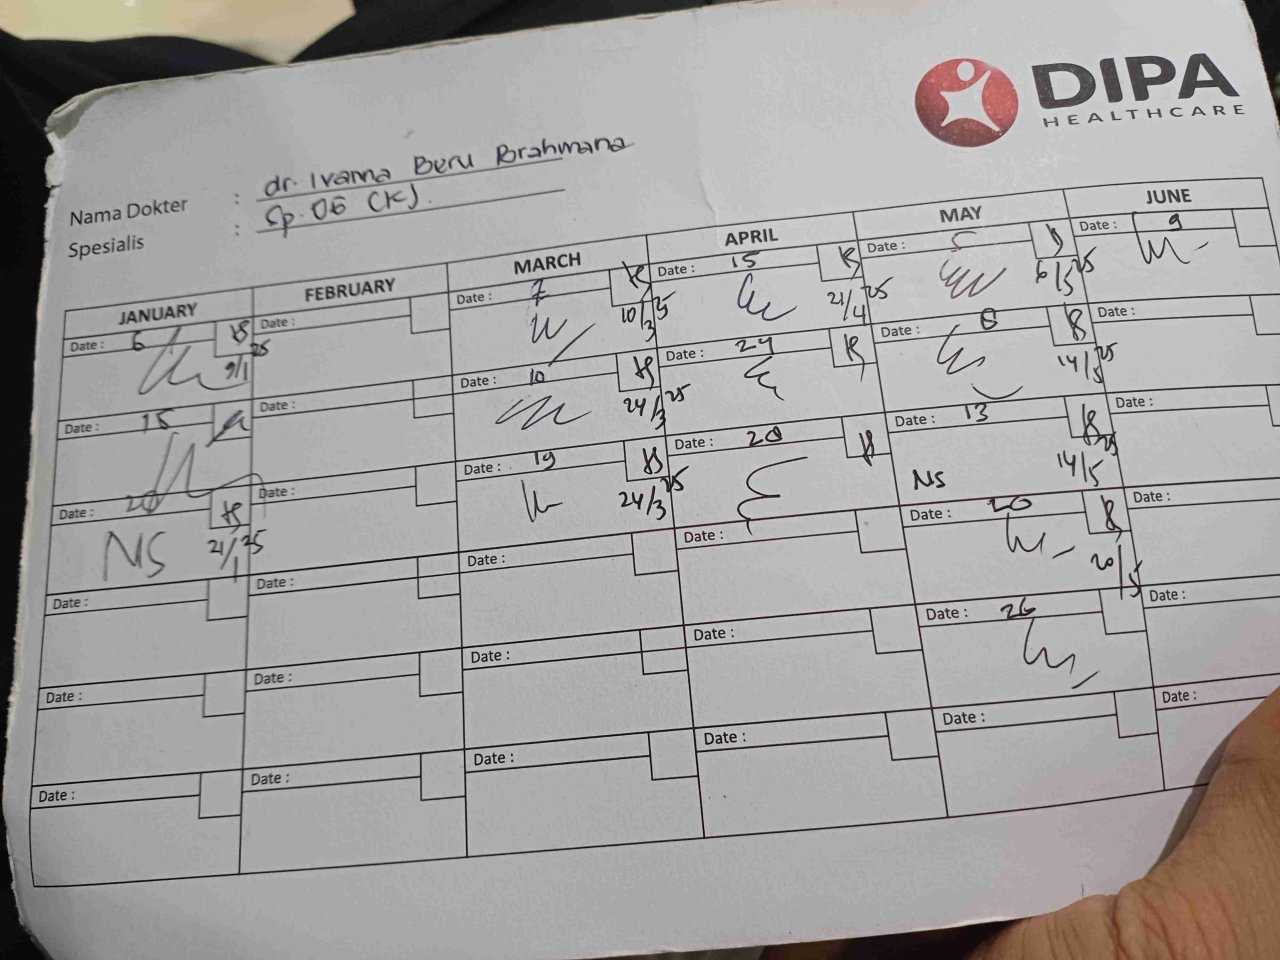 DIPA
HEALTHCARE
Nama Dokter : dr. Ivanna Beru Brahmana
Spesialis : Sp. OG (K).
JANUARY FEBRUARY MARCH APRIL MAY JUNE
Date : 6 Date : Date : 7 Date : 15 Date : 5 Date : 9
9/1 25 10/3 25 21/4 25 6/5 25
Date : 15 Date : Date : 10 Date : 24 Date : 8 Date :
24/3 25 14/5 25
Date : 20 Date : Date : 19 Date : 28 Date : 13 Date :
NS 21/1 25 24/3 25 NS 14/5 25
Date : Date : Date : Date : Date : 20 Date :
20/5
Date : Date : Date : Date : Date : 26 Date :
Date : Date : Date : Date : Date : Date :